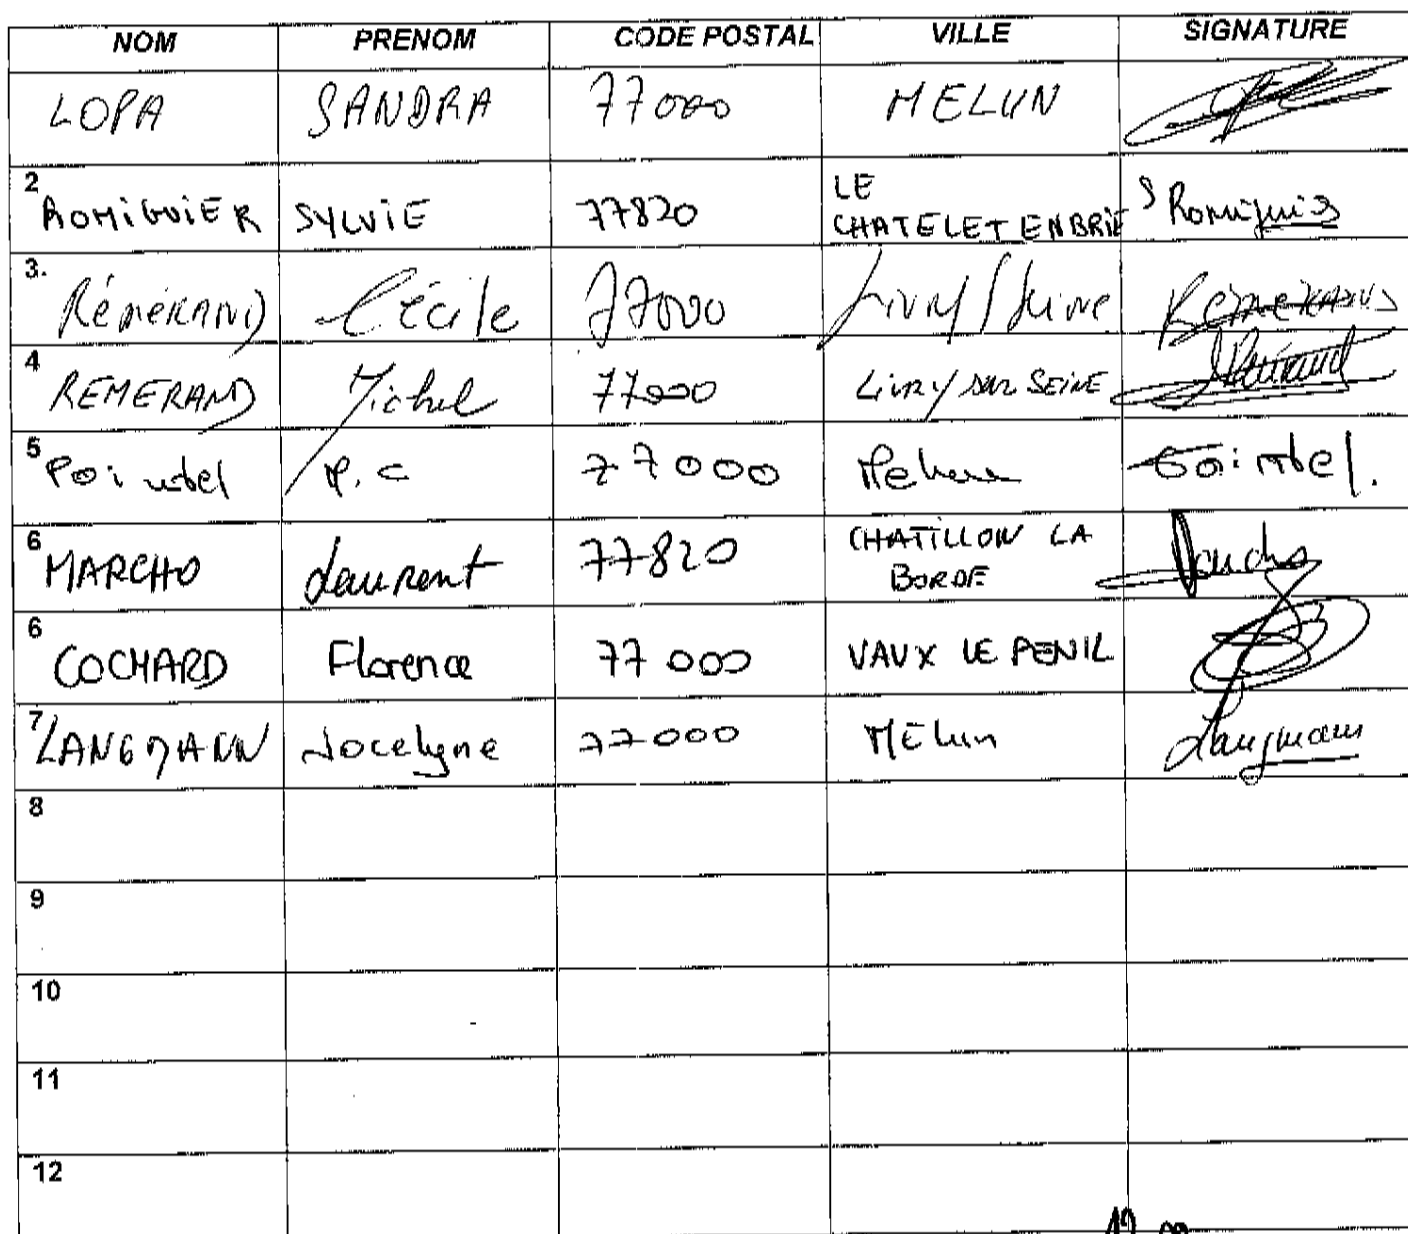 NOM PRENOM CODE POSTAL VILLE SIGNATURE
LOPA SANDRA 77000 MELUN
2 ROMIGUIER SYLVIE 77820 LE CHATELET EN BRIE S Romiguier
3. RéMéRAND Cécile 77000 Livry/Seine RéMéRAND
4 REMERAND Michel 77000 LiVRY sur SEINE
5 Pointel P.C 77000 Melun Pointel.
6 MARCHO Laurent 77820 CHATILLON LA BORDE
6 COCHARD Florence 77000 VAUX LE PENIL
7 LANGMANN Jocelyne 77000 MElun Langmann
8
9
10
11
12